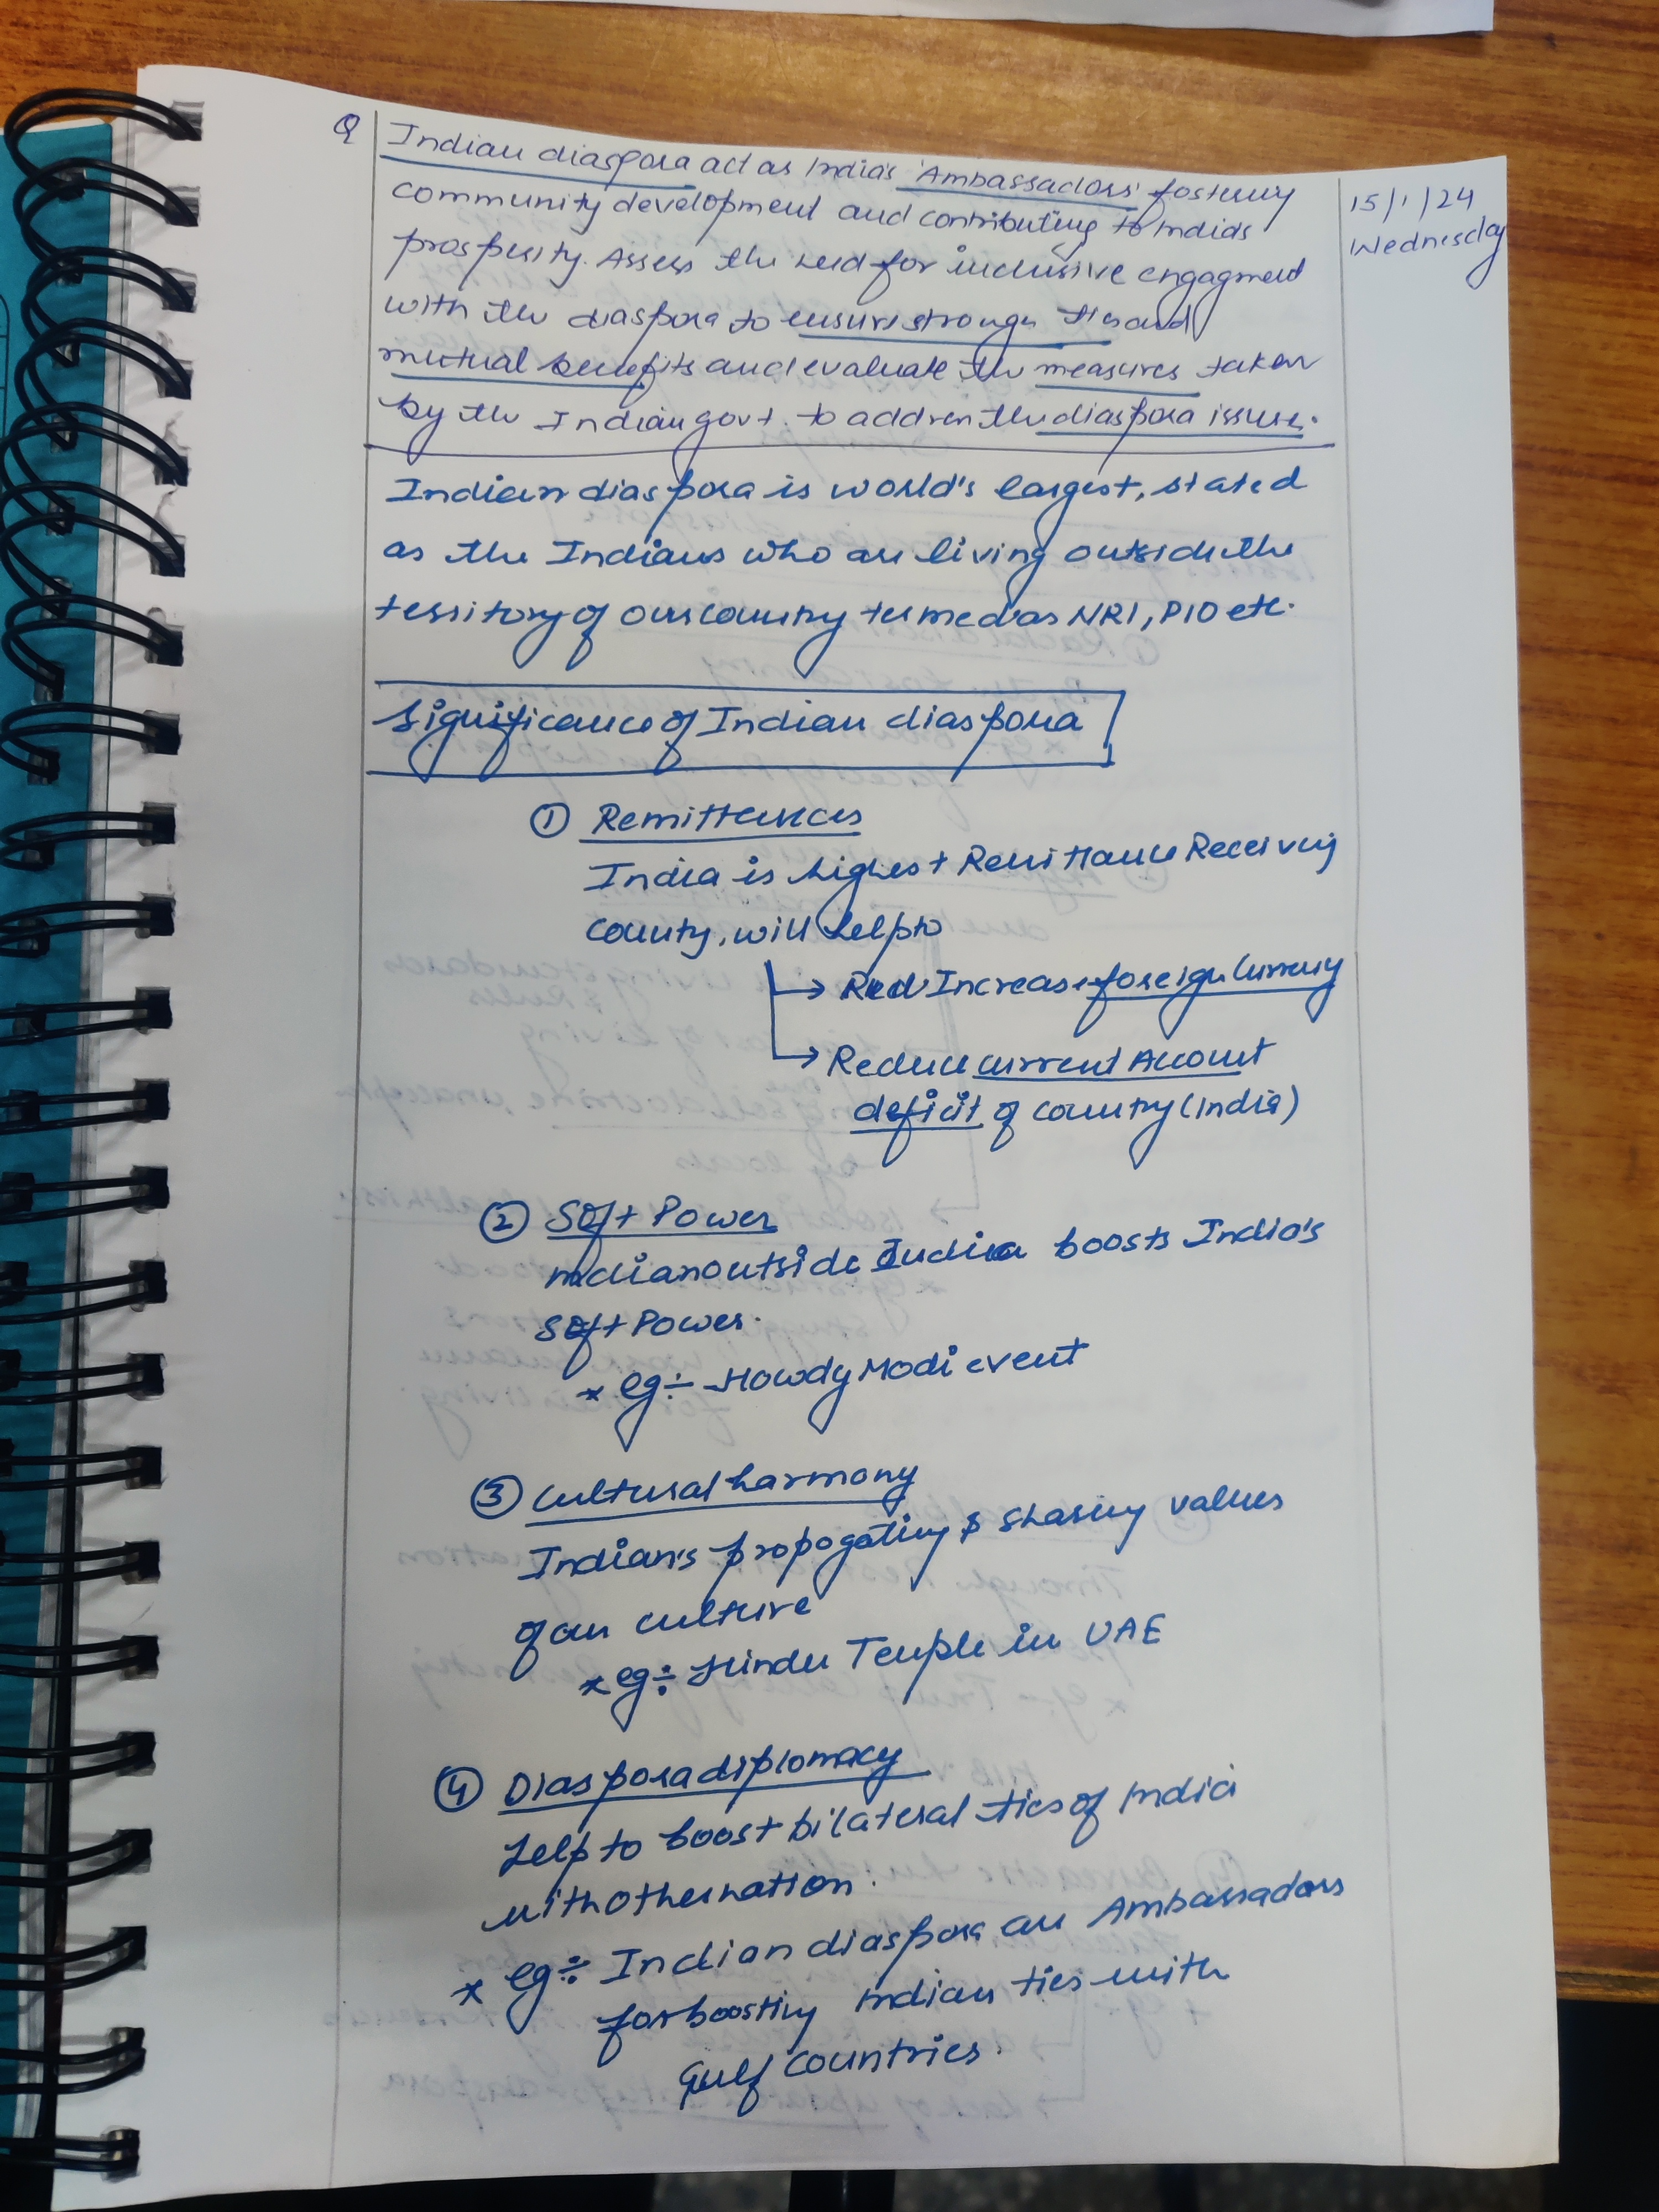 Q Indian diaspora act as India's 'Ambassadors' fostering
community development and contributing to India's
prosperity. Assess the need for inclusive engagment
with the diaspora to ensure stronger ties and
mutual benefits and evaluate the measures taken
by the Indian govt. to address the diaspora issues.
15/1/24
Wednesday
Indian diaspora is world's largest, stated
as the Indians who are living outside the
territory of our country termed as NRI, PIO etc.
Significance of Indian diaspora
① Remittences
India is highest Remittance Receiving
county, will help to
→ Increase foreign Currency
→ Reduce current Account
deficit of country (India)
② Soft Power
Indian outside India boosts India's
Soft Power.
* eg ÷ Howdy Modi event
③ Cultural harmony
Indian's propogating & sharing values
of our culture
* eg ÷ Hindu Temple in UAE
④ Diaspora diplomacy
help to boost bilateral ties of India
with other nation.
* eg ÷ Indian diaspora are Ambassadors
for boosting Indian ties with
Gulf countries.